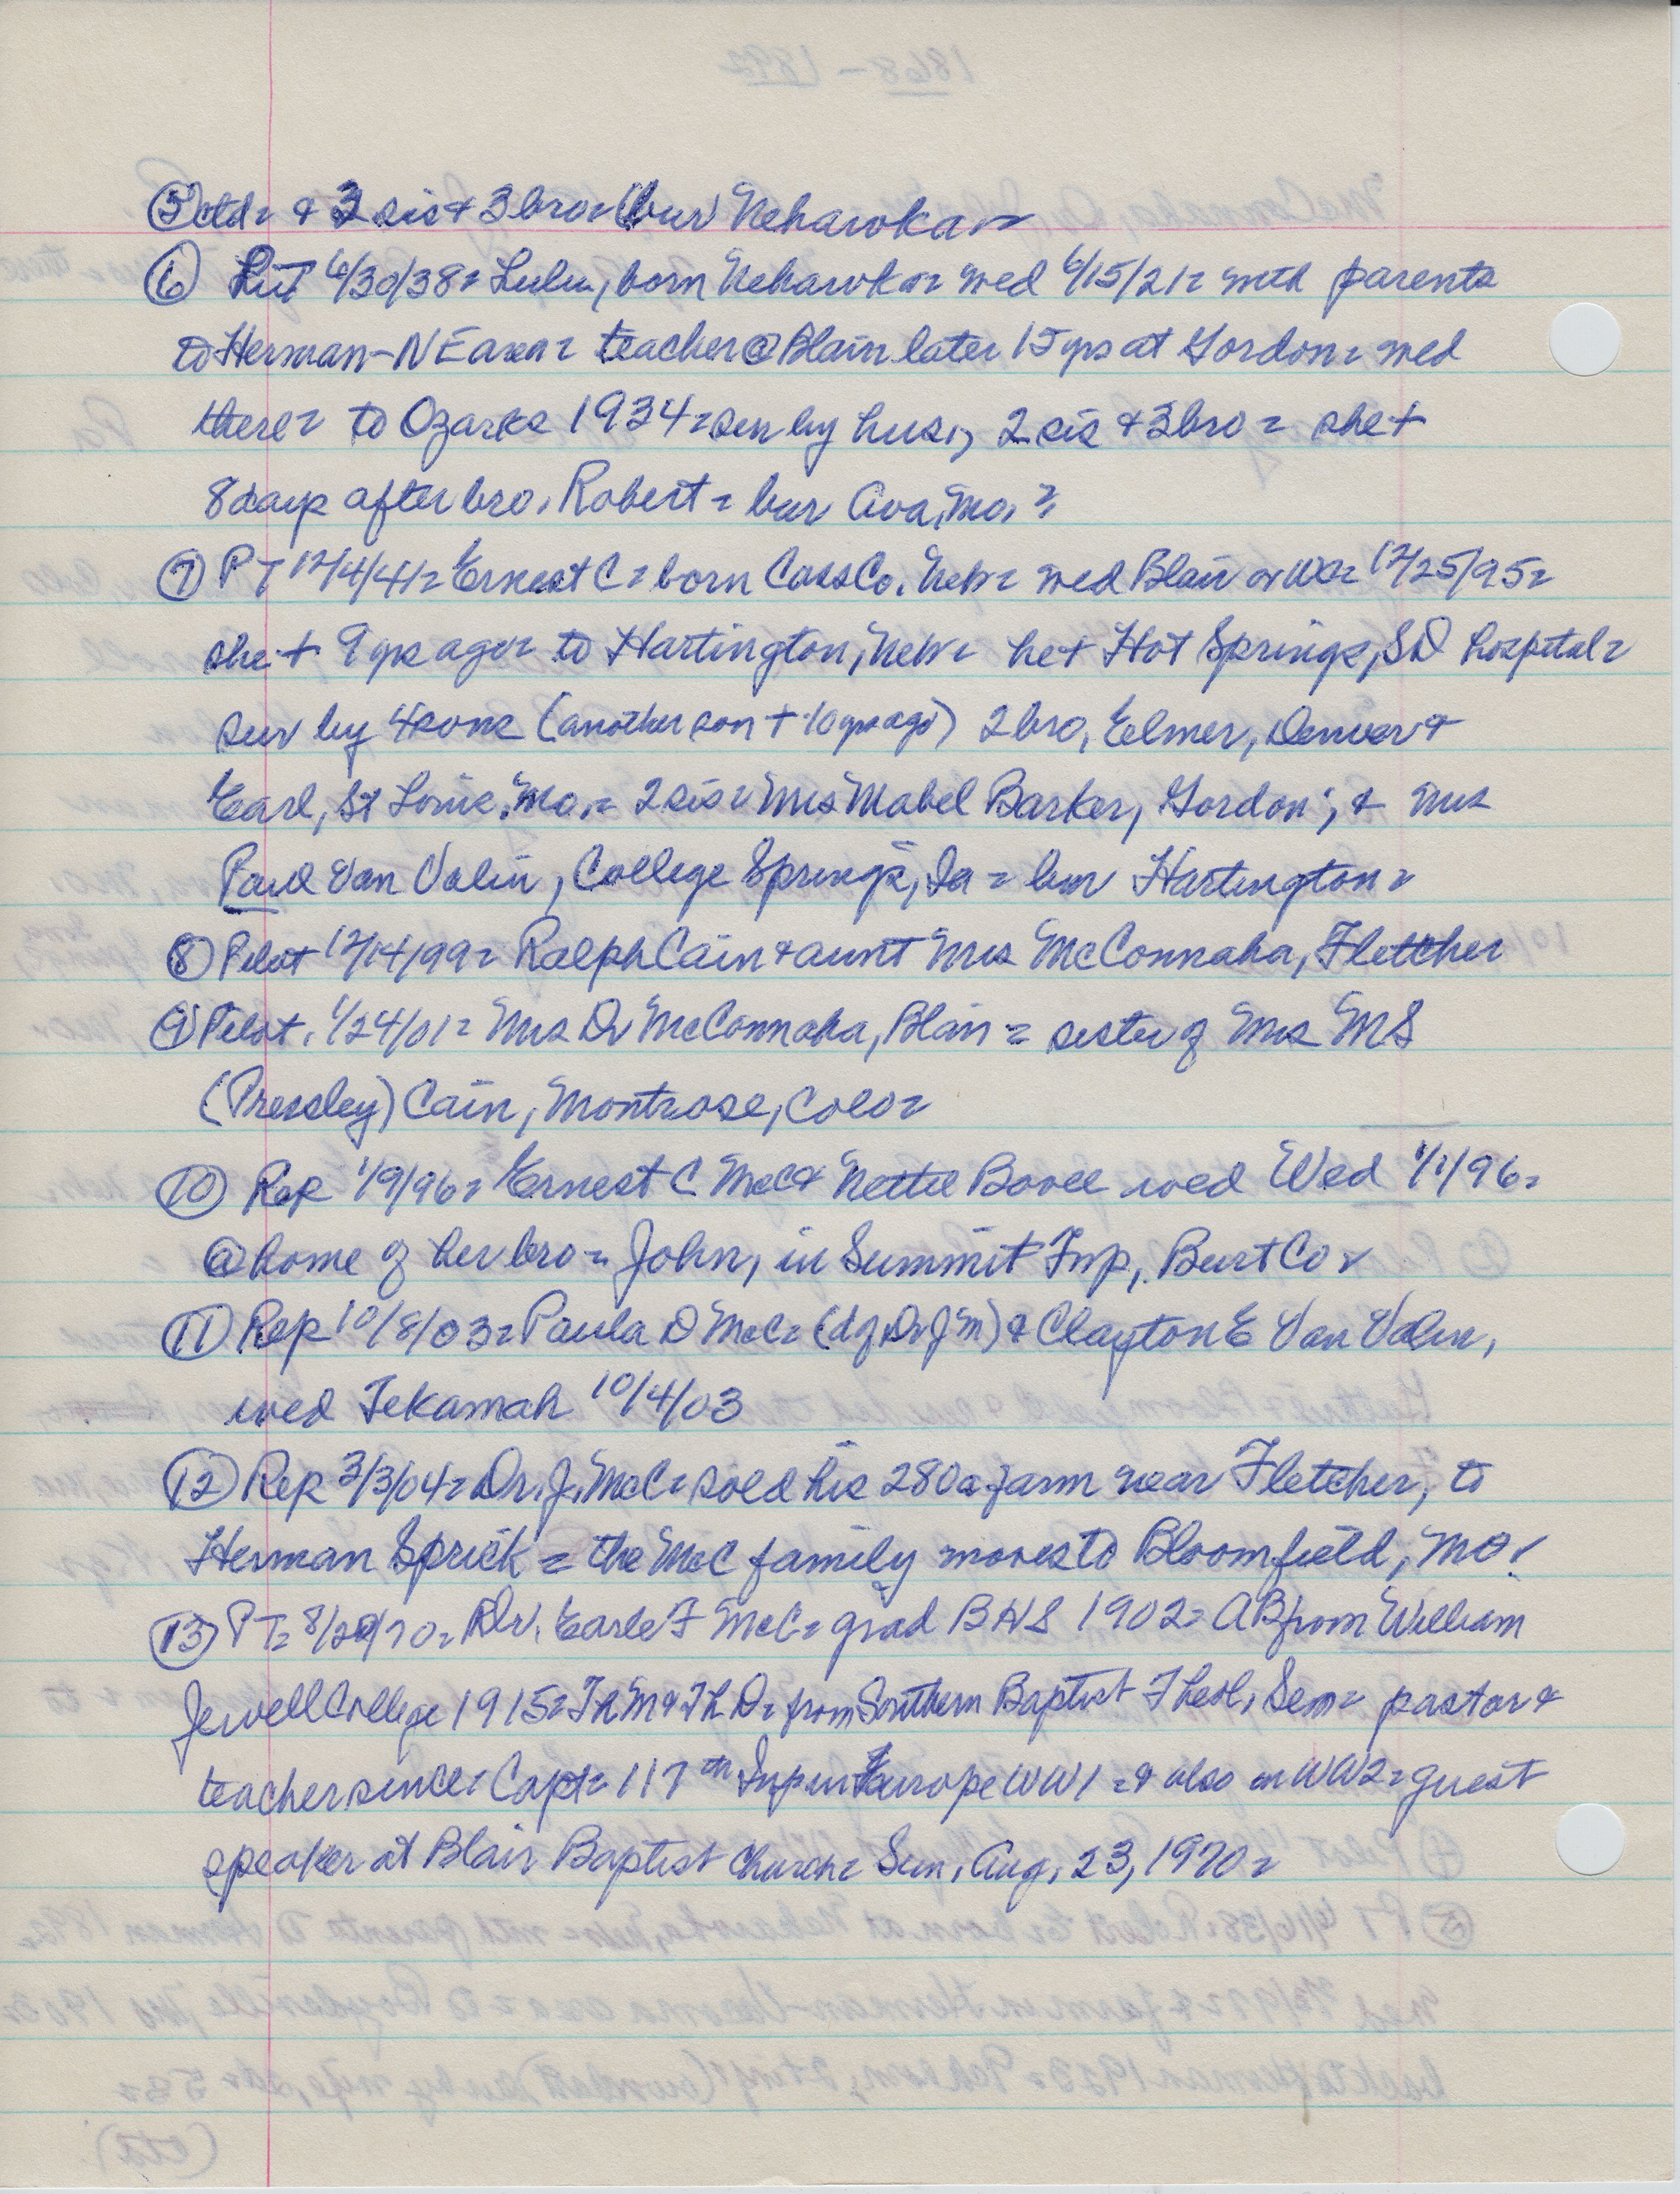 ⑤ ctd= & 3 sis & 3 bro= (bur) Nehawka=
⑥ 6/30/38= Lulu, born Nehawka= wed 6/15/21= with parents
to Herman-NE area= teacher @ Blair later 15 yrs at Gordon= wed
there= to Ozarks 1934= sur by hus, 2 sis & 3 bro= she +
8 days after bro. Robert= bur Ava, Mo.=
⑦ PT 12/4/41= Ernest C= born Cass Co. Neb= wed Blair or WC= 12/25/95=
she + 9 yrs ago= to Hartington, Neb= he + Hot Springs, SD hospital=
sur by 4 sons (another son + 10 yrs ago) 2 bro, Elmer, Denver &
Earl, St Louis, Mo.= 2 sis= Mrs Mabel Barker, Gordon; & Mrs
Paul Van Valin, College Springs, Ia= bur Hartington=
⑧ Pilot 12/14/99= Ralph Cain & aunt Mrs McConnaha, Fletcher
⑨ Pilot. 1/24/01= Mrs Dr McConnaha, Blair= sister of Mrs MS
(Pressley) Cain, Montrose, Colo=
⑩ Rep 1/9/96= Ernest C McC & Nettie Bovee wed Wed 1/1/96=
@ home of her bro= John, in Summit Twp, Burt Co=
⑪ Rep 10/8/03= Paula D McC= (d of Dr J M) & Clayton E Van Valin,
wed Tekamah 10/4/03
⑫ Rep 3/3/04= Dr. J. McC= sold his 280a farm near Fletcher, to
Herman Sprick= the McC family moves to Bloomfield, MO=
⑬ PT= Dr. Earle F McC= grad BHS 1902= AB from William
Jewell College 1915= ThM & ThD= from Southern Baptist Theol. Sem= pastor &
teacher since= Capt= 117th Inf in Europe WW1= & also in WW2= guest
speaker at Blair Baptist Church= Sun, Aug, 23, 1970=